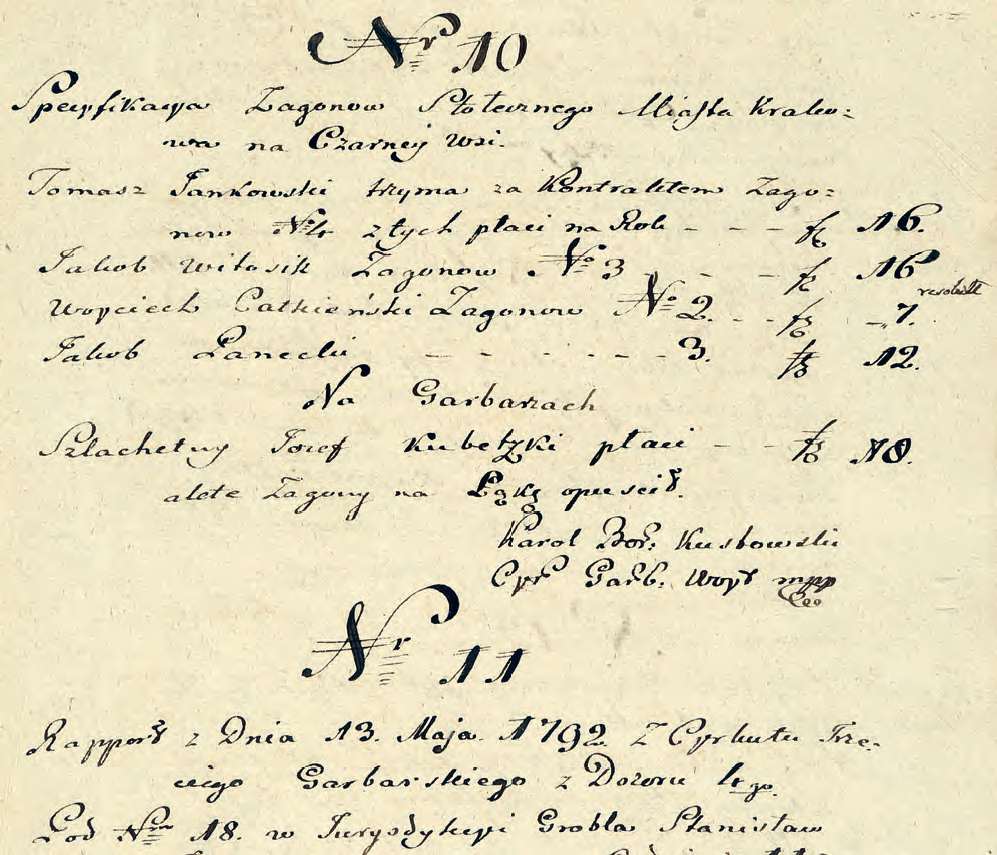 Nr 10
Specyfikacya Zagonow Stołecznego Miasta Krako=
wa na Czarney Wsi.
Tomasz Jankowski trzyma za Kontraktem Zago=
now No 4 z tych płaci na Rok - - - fz 16.
Jakob Witosik Zagonow No 3 - - - fz 16
Woyciech Zagonow No 2. - - fz - 7.
Jakob Panecki - - - - - - - 3. fz 12.
Na Garbarzach
Szlachetny Jozef Kubetzki płaci - - - fz 18.
alete Zagony na Łąkę opuscił.
Karol Bor:
Cyr Garb. Woyt mpp
Nr 11
Rapport z Dnia 13. Maja. 1792. Z Cyrkułu Trze-
ciego Garbarskiego z Dozoru 4go.
Pod Nrm 18. w Jurysdykcyi Grobla Stanisław